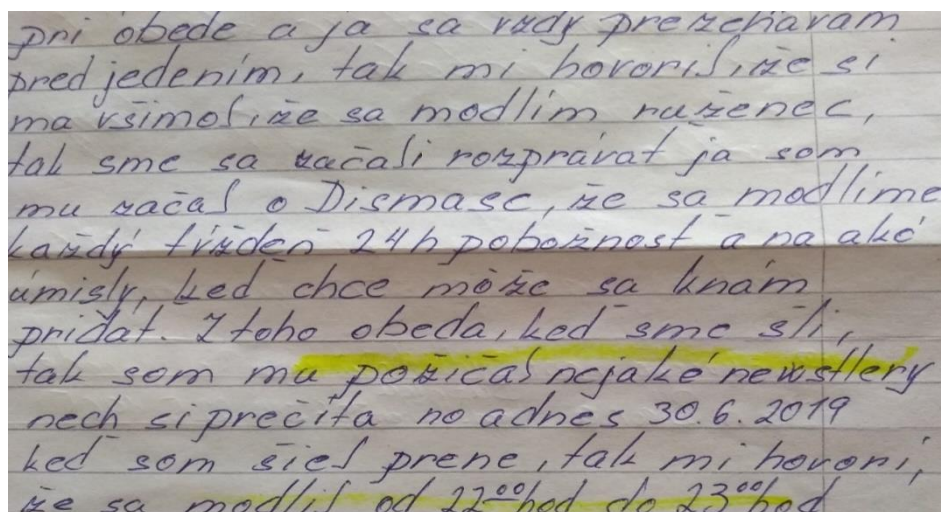 pri obede a ja sa vždy prežehávam
pred jedením, tak mi hovoril, že si
ma všimol, že sa modlím ruženec,
tak sme sa začali rozprávat ja som
mu začal o Dismase, že sa modlíme
každý tíždeň 24h pobožnost a na aké
úmisly, keď chce môže sa knám
pridat. Z toho obeda, keď sme šli,
tak som mu požičal nejaké newstlery
nech si prečíta no adnes 30.6.2019
keď som šiel prene, tak mi hovori,
že sa modlil od 22⁰⁰hod do 23⁰⁰hod